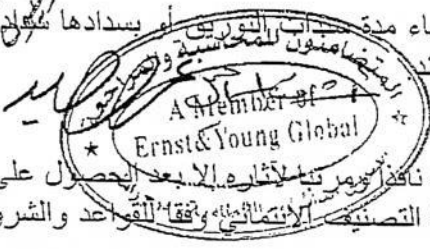 اء مدة سندات التوريق أو بسدادها
المتضامنون للمحاسبة والمراجعة
A Member of
Ernst & Young Global
نافذا ومرتبا لآثاره إلا بعد الحصول على
التصنيف الائتماني وفقا للقواعد والشرو